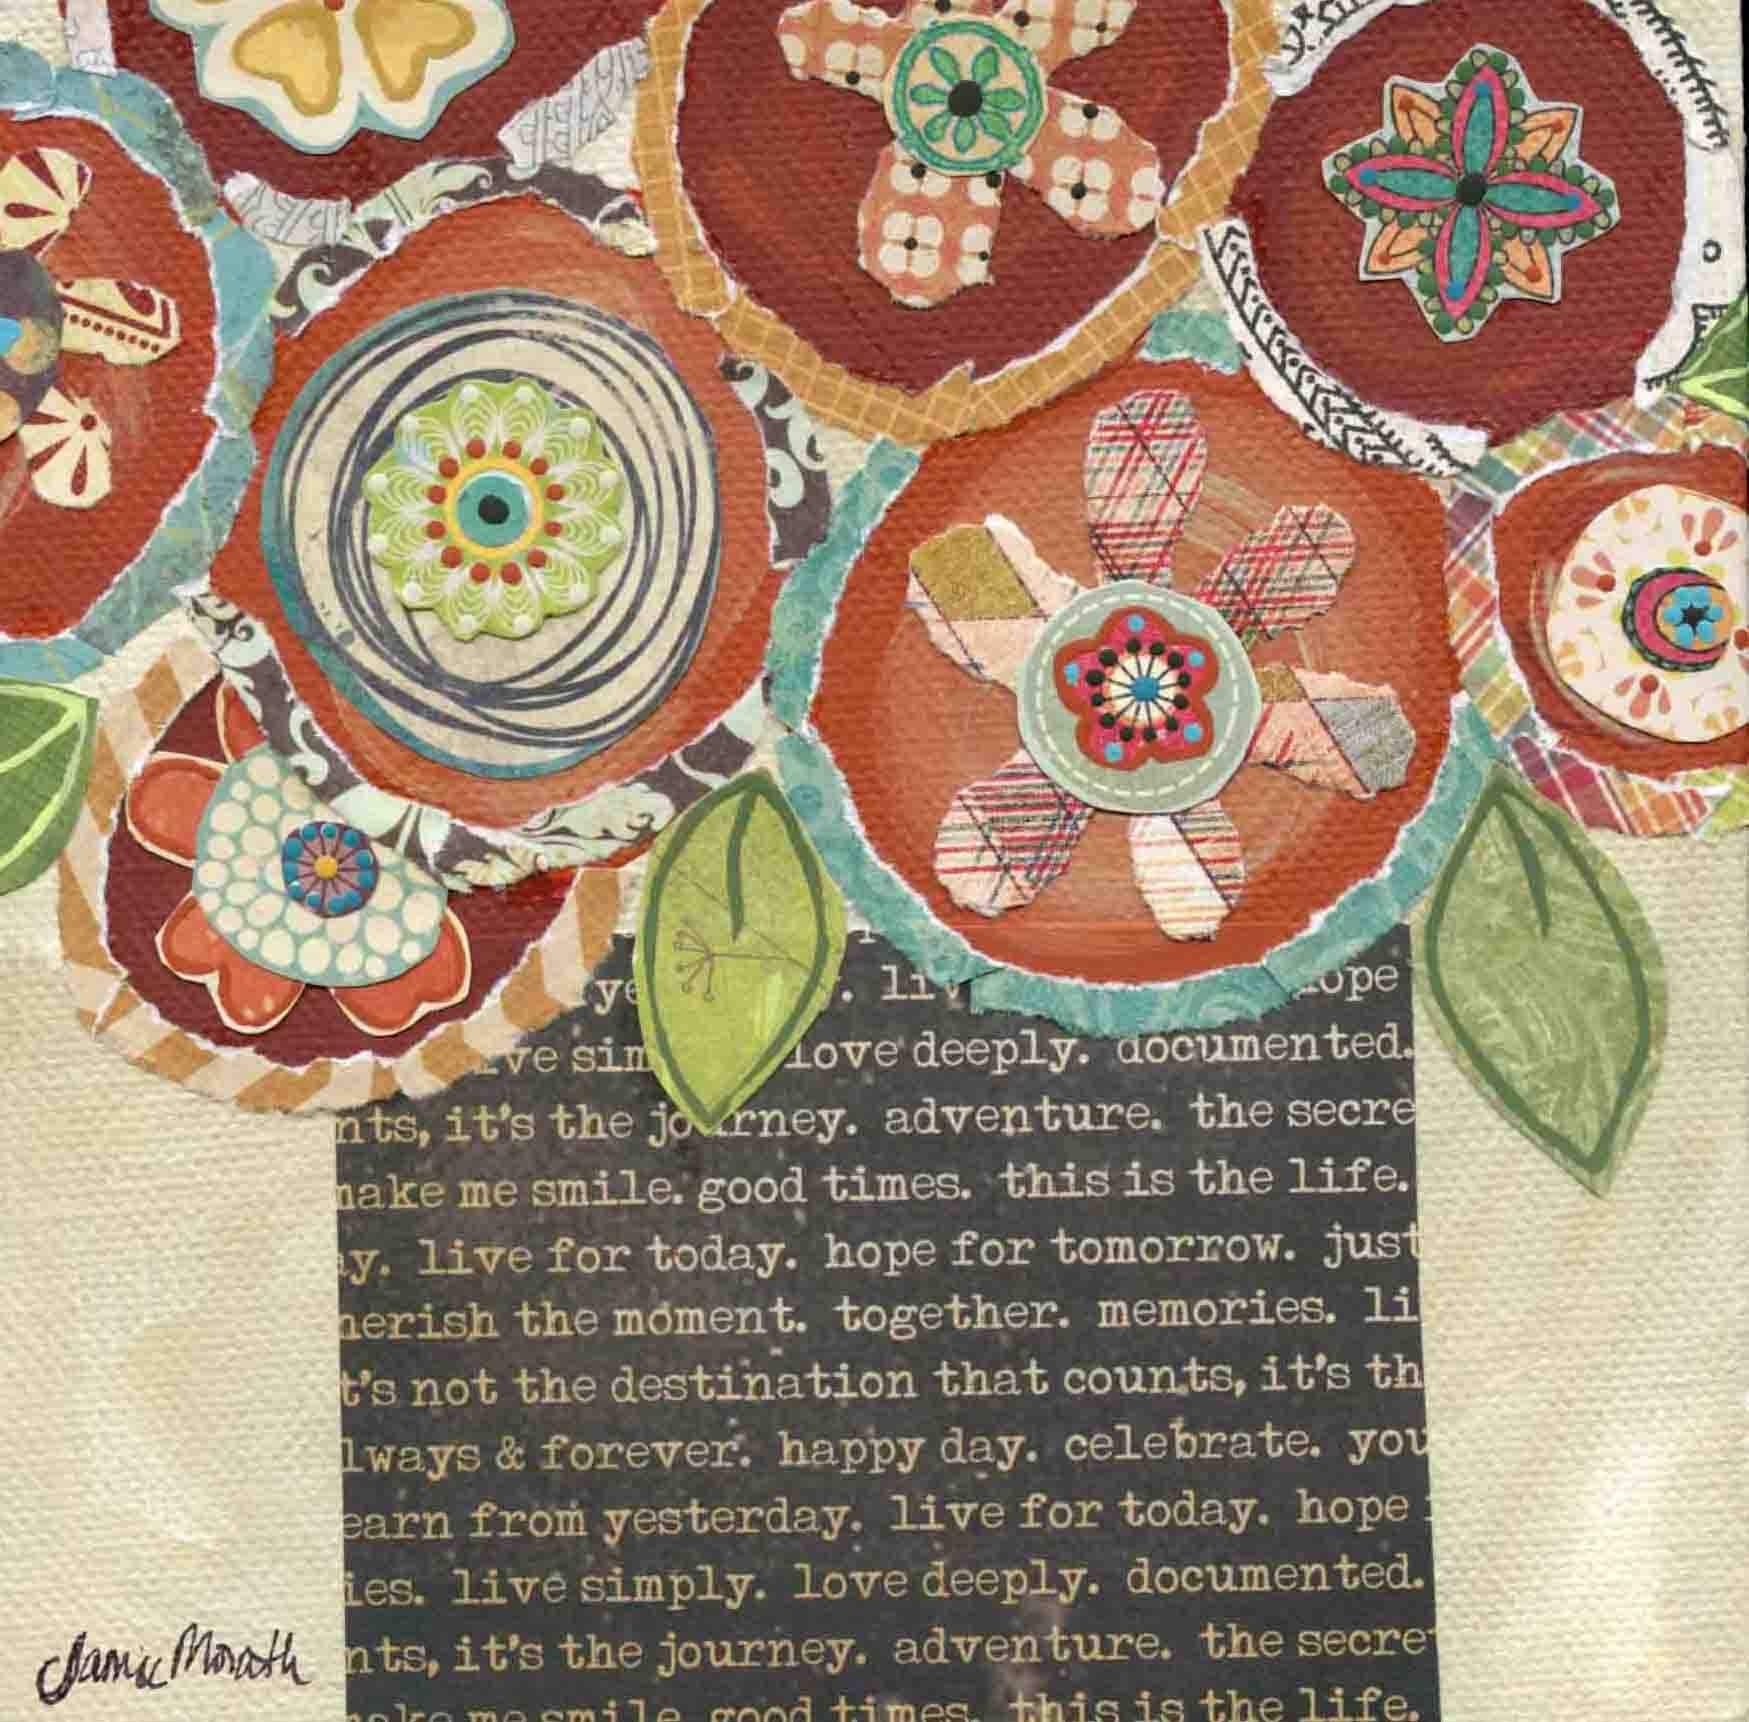 . liv ope
ve sim love deeply. documented.
nts, it's the journey. adventure. the secre
make me smile. good times. this is the life.
y. live for today. hope for tomorrow. just
herish the moment. together. memories. li
t's not the destination that counts, it's th
lways & forever. happy day. celebrate. you
earn from yesterday. live for today. hope
ies. live simply. love deeply. documented.
nts, it's the journey. adventure. the secret
make me smile. good times. this is the life.
Jamie Morath